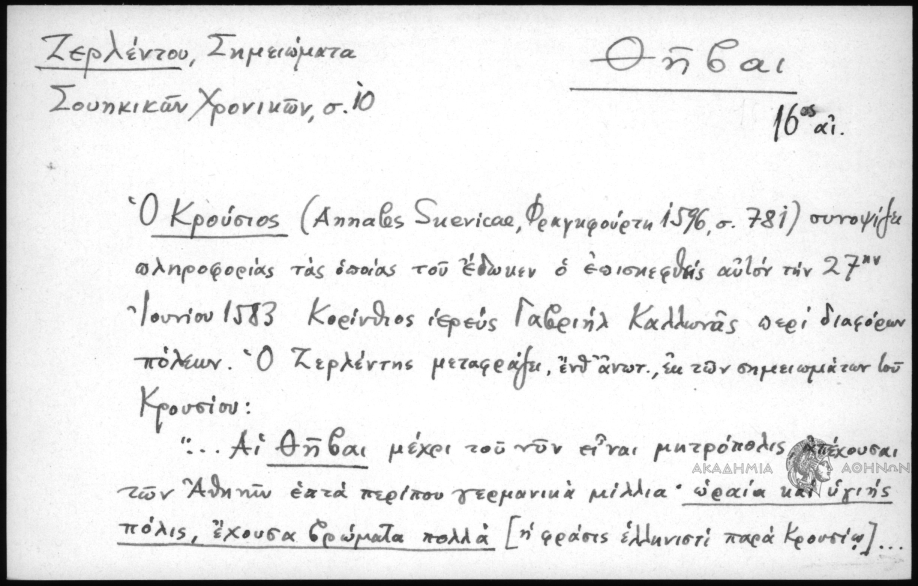 Ζερλέντου, Σημειώματα
Σουηκικῶν Χρονικῶν, σ. 10
Θῆβαι
16ος αἰ.
Ὁ Κρούσιος (Annales Suevicae, Φραγκφούρτη 1596, σ. 781) συνοψίζει
πληροφορίας τὰς ὁποίας τοῦ ἔδωκεν ὁ ἐπισκεφθεὶς αὐτὸν τὴν 27ην
Ἰουνίου 1583 Κορίνθιος ἱερεὺς Γαβριὴλ Καλλωνᾶς περὶ διαφόρων
πόλεων. Ὁ Ζερλέντης μεταφράζει, ἔνθ' ἀνωτ., ἐκ τῶν σημειωμάτων τοῦ
Κρουσίου:
"... Αἱ Θῆβαι μέχρι τοῦ νῦν εἶναι μητρόπολις ἀπέχουσαι
ΑΚΑΔΗΜΙΑ ΑΘΗΝΩΝ
τῶν Ἀθηνῶν ἑπτὰ περίπου γερμανικὰ μίλλια· ὡραία καὶ ὑγιὴς
πόλις, ἔχουσα βρώματα πολλὰ [ἡ φράσις ἑλληνιστὶ παρὰ Κρουσίῳ]...